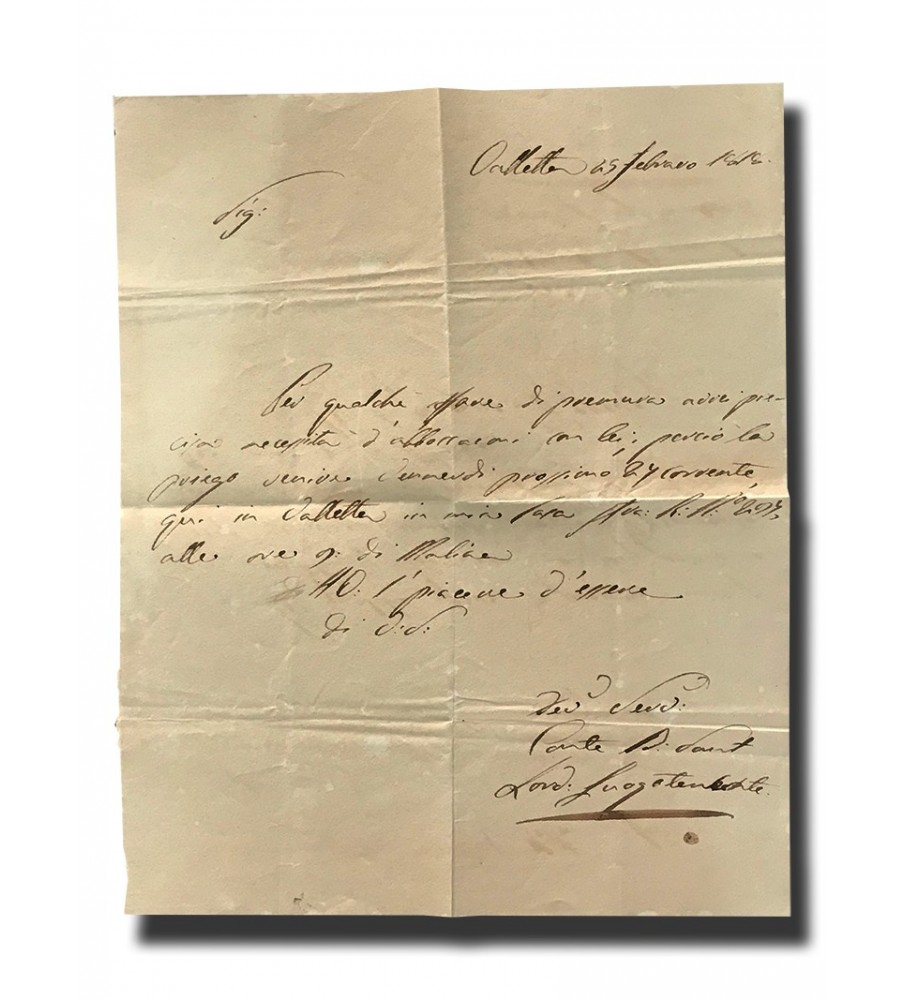 Valletta 25 febraro
Sig:
Per qualche affare di premura avrei pre-
cisa necessità d'abboccarmi con lei; perciò la
priego venire Vennerdì prossimo 27 corrente
qui in Valletta in mia Casa Stra:
alle ore 9: di Mattina
Ho: l'piacere d'essere
di V: S:
Dev: Serv:
Conte B: Sant
Lord: Luogotenente.